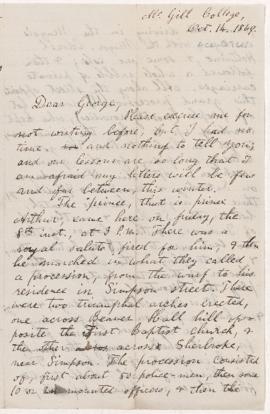 Mc Gill College,
Oct. 14, 1869.
Dear George,
Please excuse me for
not writing before, but I had no
time and nothing to tell you,
and our lessons are so long that I
am afraid my letters will be few
and far between, this winter.
The prince, that is prince
Arthur, came here on friday, the
8th inst, at 3 P.M. There was a
royal salute fired for him, & then
he marched in what they called
a procession, from the warf to his
residence in Simpson street. There
were two triumphal arches erected,
one across Beaver Hall hill op-
posite the first Baptist church, &
the other across Sherbroke,
near Simpson. The procession consisted
of, first about 50 police-men, then some
10 or mounted officers, & then the